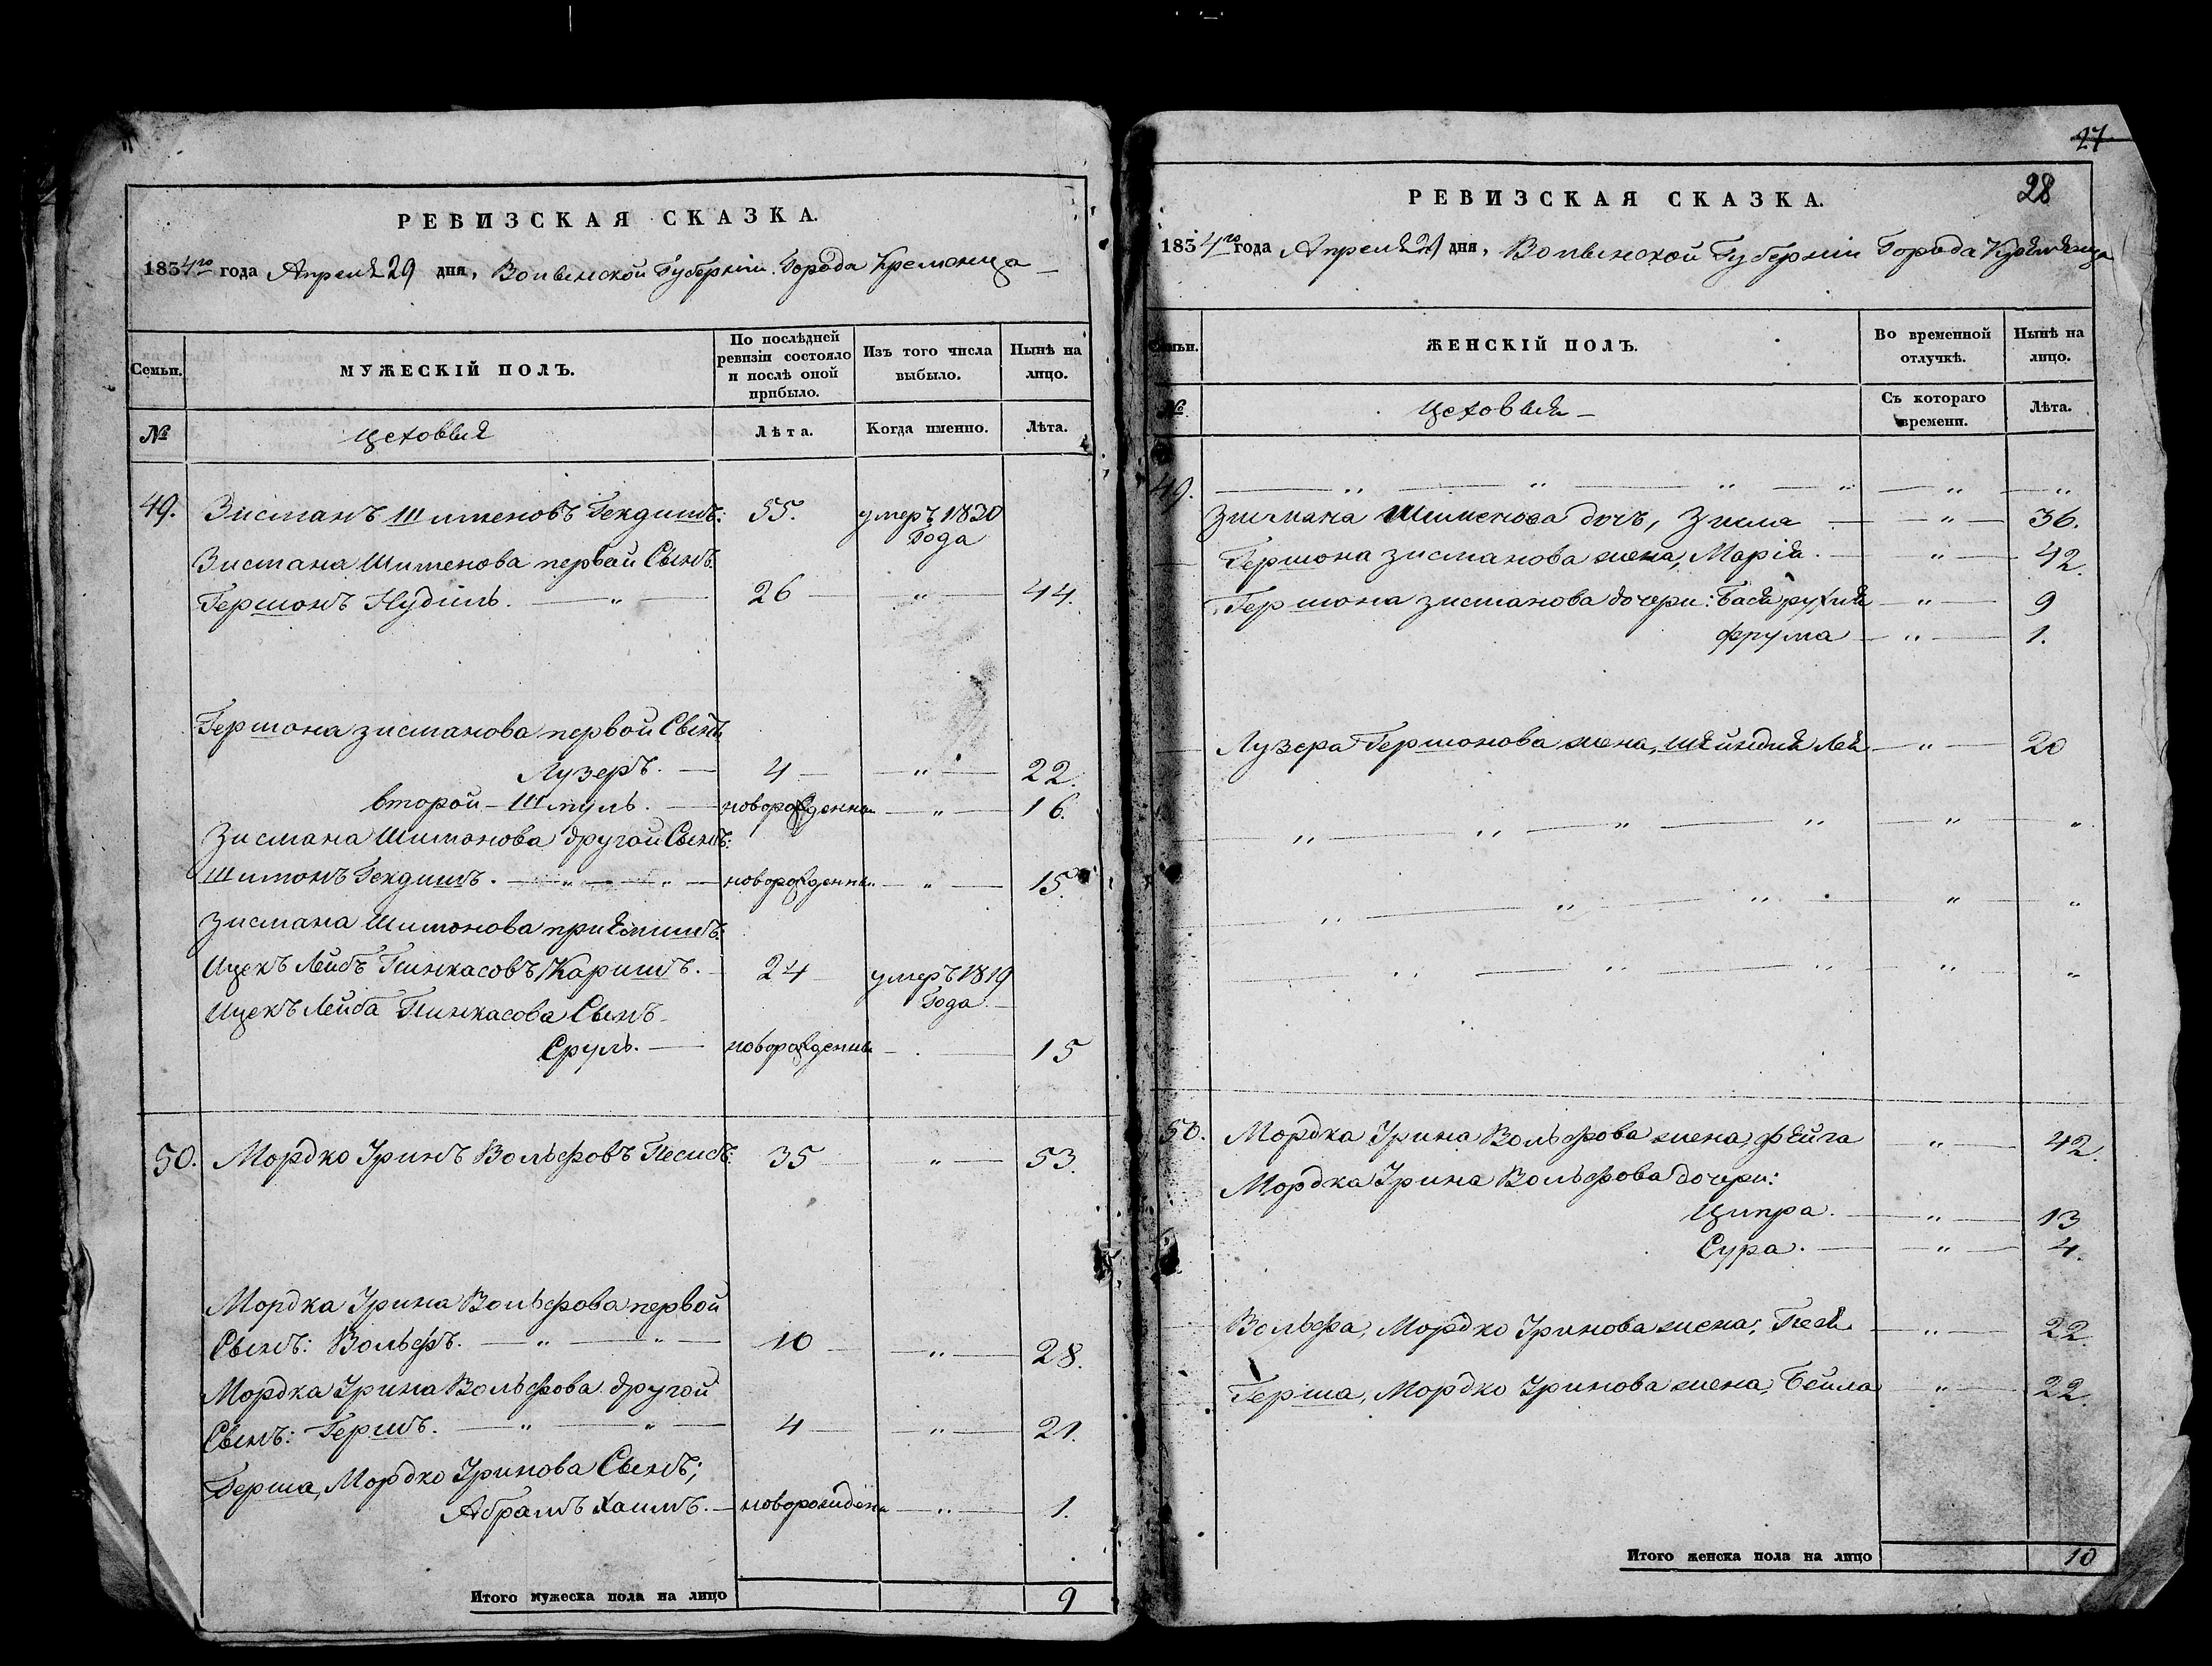 РЕВИЗСКАЯ СКАЗКА.
1834го года Апреля 29 дня, Волынской Губерніи. Города Кременца
Семьи.
МУЖЕСКІЙ ПОЛЪ.
По послѣдней ревизіи состояло и послѣ оной прибыло.
Изъ того числа выбыло.
Нынѣ на лицо.
№
Цеховыя
Лѣта.
Когда именно.
Лѣта.
49. Зисманъ Шименовъ 55. умеръ 1830 года
Зисмана Шименова первой Сынъ
Гершонъ Нудиль. — " — 26 — " — 44.
Гершона зисманова первой Сынъ
Лузеръ. — 4 — " — 22.
второй — Шмуль. — новорожденны — " — 16.
Зисмана Шимонова другой Сынъ:
Шимонъ — " — " — новорожденны — " — 15
Зисмана Шимонова приемышъ:
Ицекъ Лейбъ Пинкасовъ Каришъ. 24 умеръ 1819 года
Ицекъ Лейба Пинкасова Сынъ
Сруль. — новорожденны — 15
50. Мордко Юринъ Вольфовъ Песисъ: 35 — " — 53.
Мордка Юрина Вольфова первой
Сынъ: Вольфъ. — " — " — 10 — " — 28.
Мордка Юрина Вольфова другой
Сынъ: Гершъ. — " — " — 4 — " — 21.
Герша, Мордко Юринова Сынъ;
Абрамъ Хаимъ. — новорожденъ — " — 1.
Итого мужеска пола на лицо 9
27
28
РЕВИЗСКАЯ СКАЗКА.
1834го года Апреля 29 дня, Волынской Губерніи Города Кремянца
Семьи.
ЖЕНСКІЙ ПОЛЪ.
Во временной отлучкѣ.
Нынѣ на лицо.
№
Цеховыя —
Съ котораго времени.
Лѣта.
49. — " — " — " — " — " — "
Зисмана Шименова дочь, Зисля — " — 36.
Гершона зисманова жена, Марія. — " — 42.
Гершона зисманова дочери: Бася рухля — " — 9
Фрума — " — 1.
Лузера Гершонова жена, шейндля Лея — " — 20
" — " — " — " — " — "
" — " — " — " — "
" — " — " — " — "
50. Мордка Юрина Вольфова жена, фейга " — 42.
Мордка Юрина Вольфова дочери:
Ципра. — " — 13
Сура. — " — 4.
Вольфа, Мордко Юринова жена, Песя — " — 22
Герша, Мордко Юринова жена, Бейла " — 22.
Итого женска пола на лицо 10